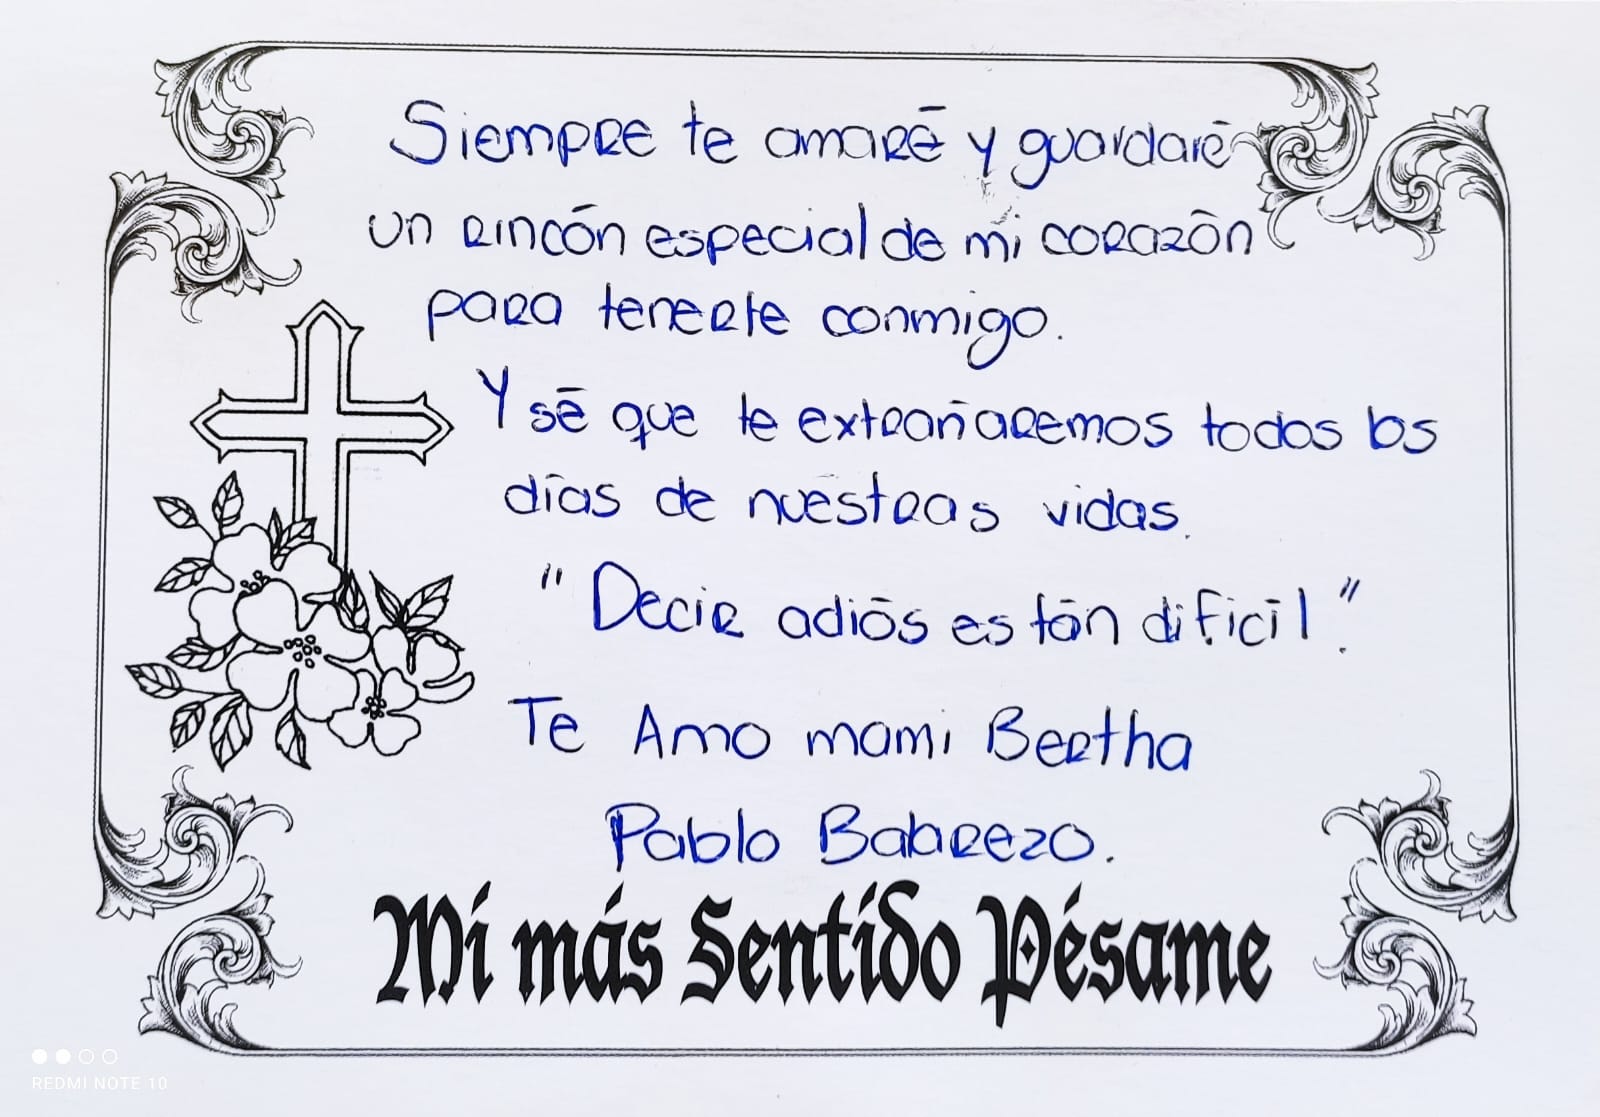 Siempre te amaré y guardaré
un rincón especial de mi corazón
para tenerte conmigo.
Y sé que te extrañaremos todos los
días de nuestras vidas.
"Decir adiós es tán dificil".
Te Amo mami Bertha
Pablo Babarezo.
Mi más Sentido Pésame
REDMI NOTE 10